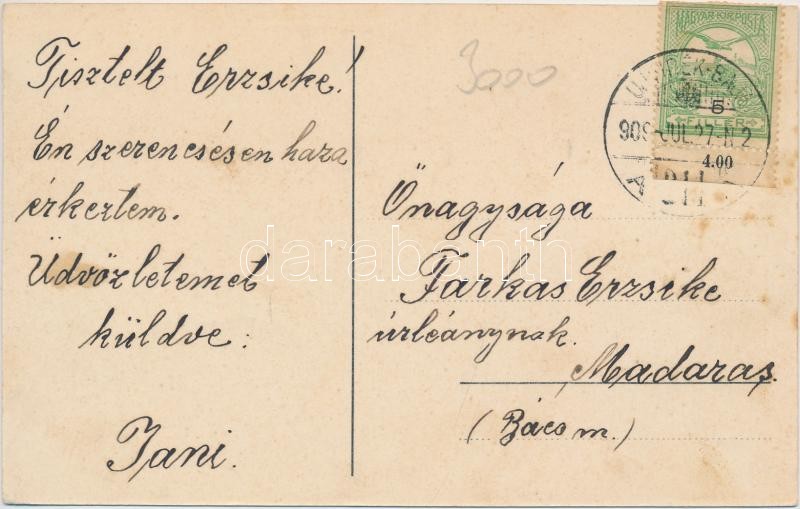 Tisztelt Erzsike!
Én szerencsésen haza
érkeztem.
Üdvözletemet
küldve:
Jani.
3000
MAGYAR KIR. POSTA
5
FILLÉR
4.00
909 JUL. 27. N 2
A 211
Önagysága
Farkas Erzsike
úrleánynak.
Madaras.
(Bács m.)
darabanth